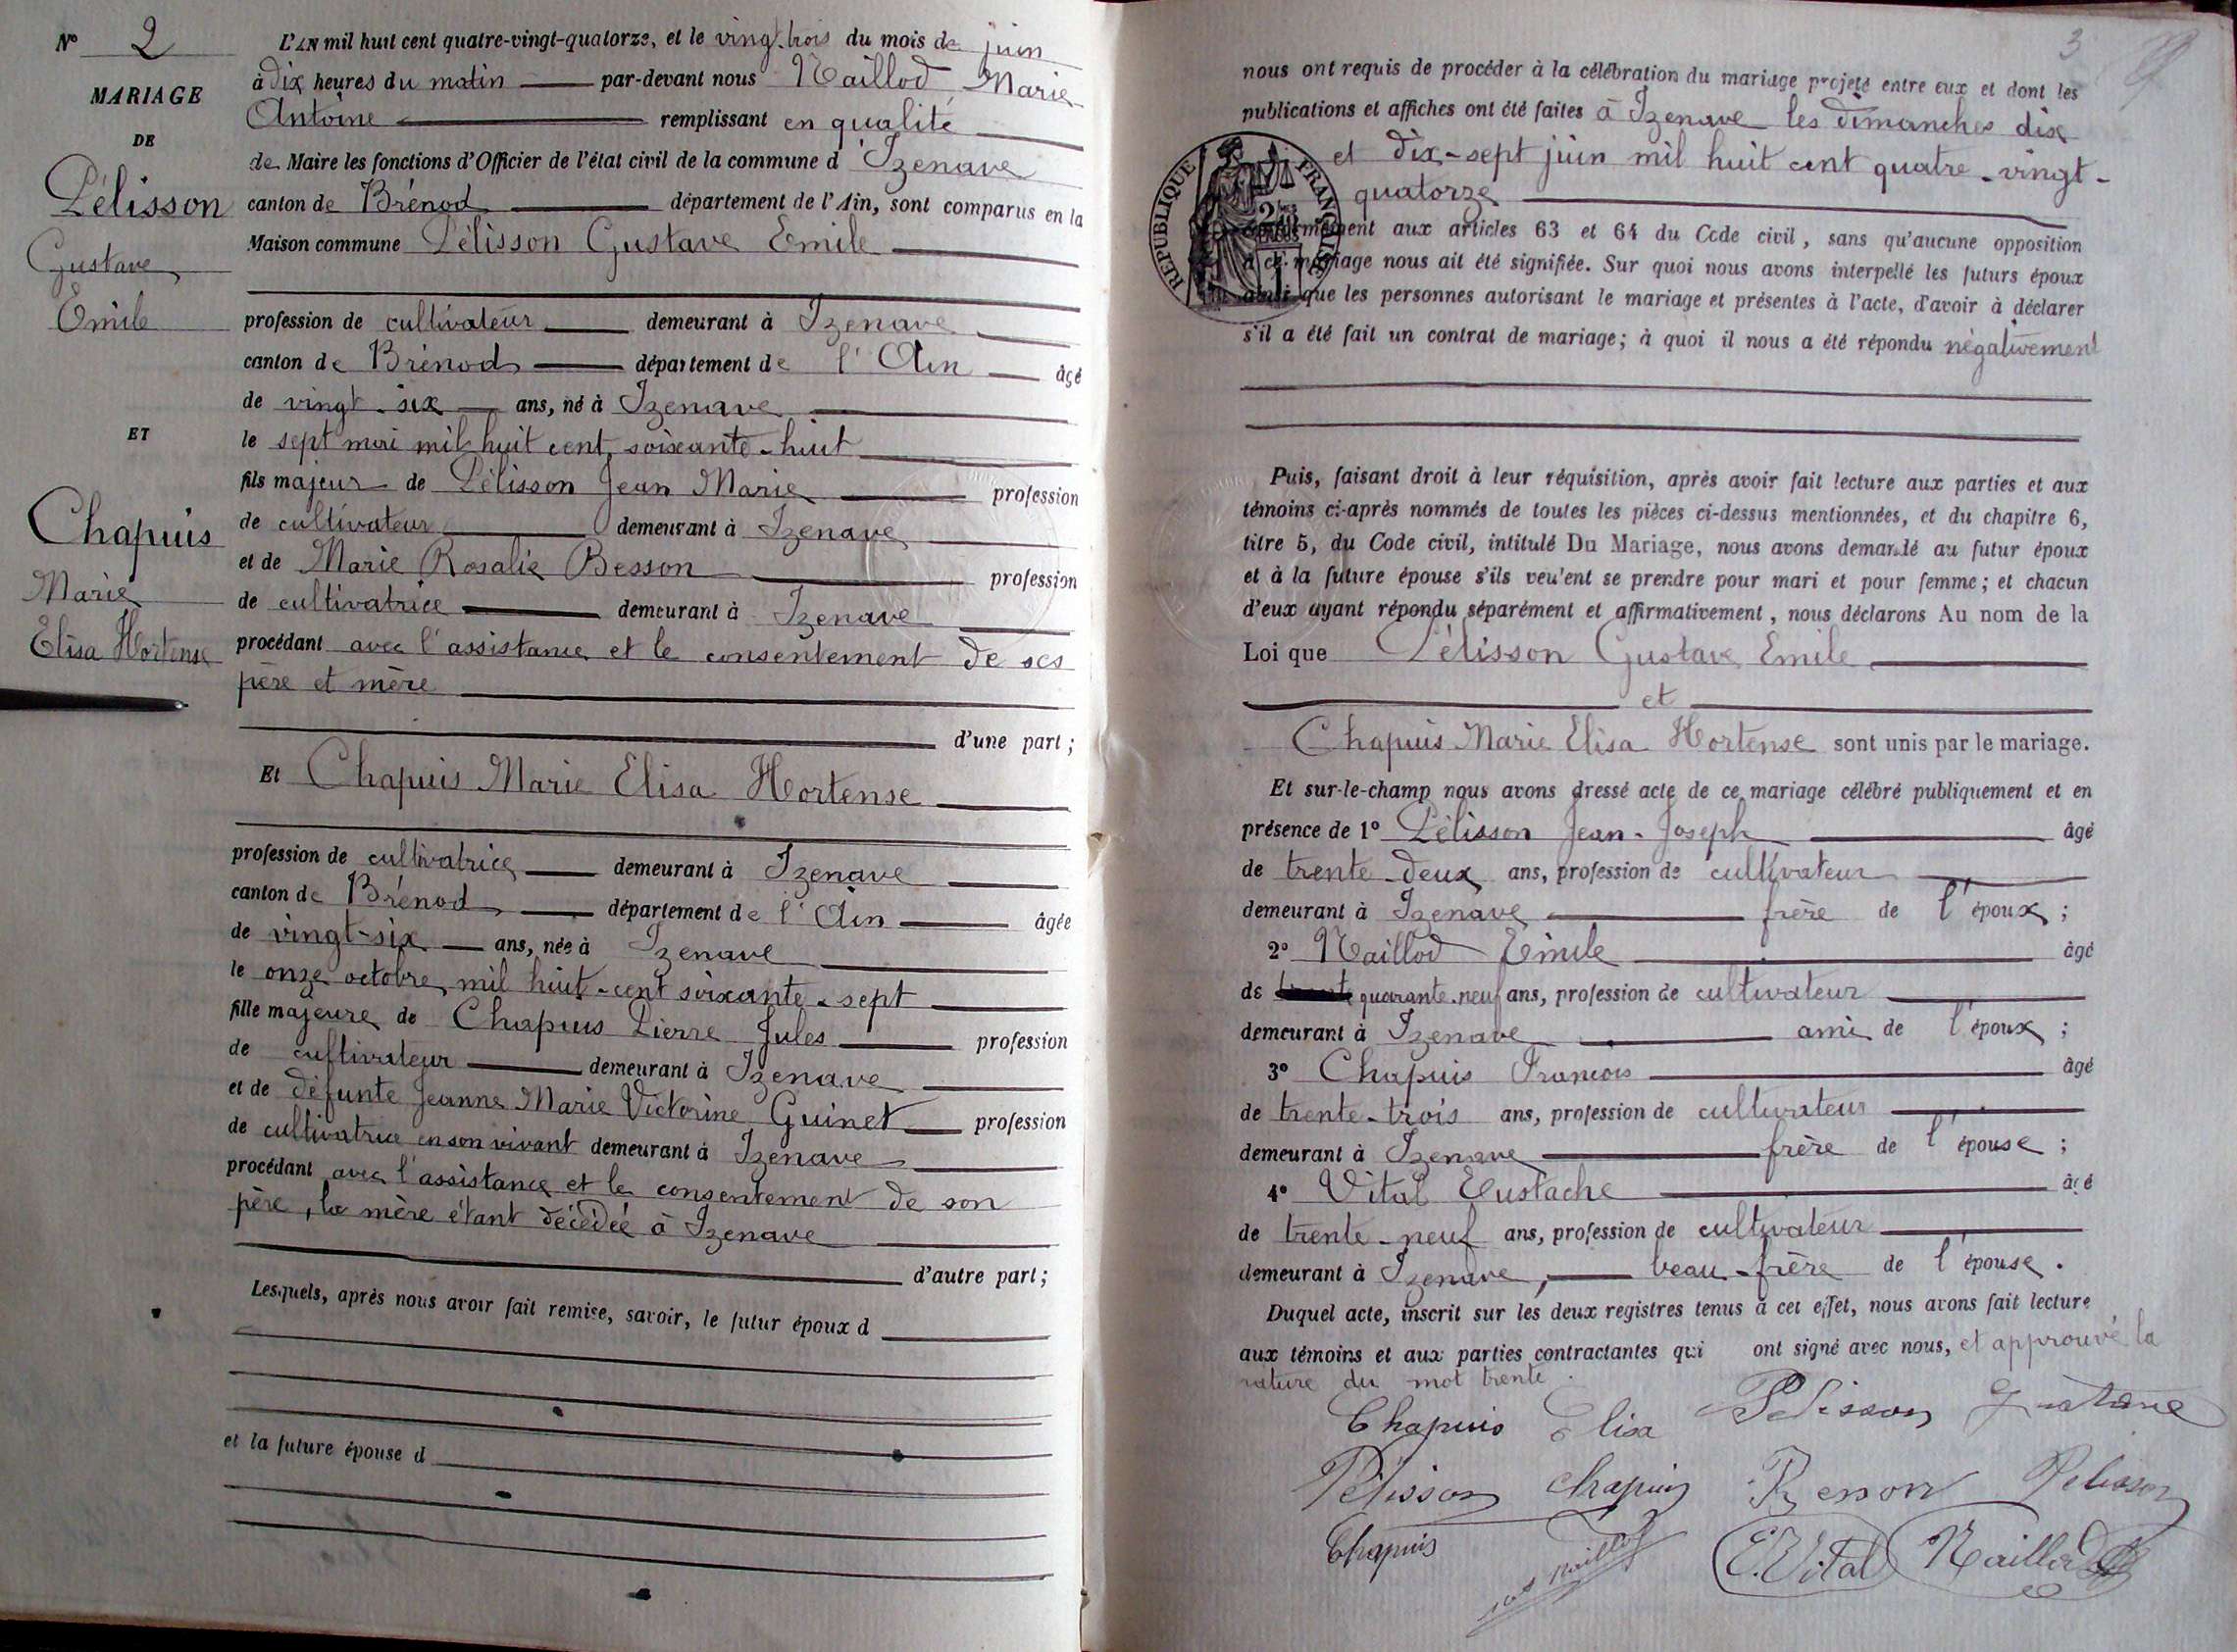 N° 2
MARIAGE
DE
Pélisson
Gustave
Emile
ET
Chapuis
Marie
Elisa Hortense
L'AN mil huit cent quatre-vingt-quatorze, et le vingt-trois du mois de juin
à dix heures du matin par-devant nous Naillod Marie
Antoine remplissant en qualité
de Maire les fonctions d'Officier de l'état civil de la commune d'Izenave
canton de Brénod département de l'Ain, sont comparus en la
Maison commune Pélisson Gustave Emile
profession de cultivateur demeurant à Izenave
canton de Brénod département de l'Ain âgé
de vingt-six ans, né à Izenave
le sept mai mil huit cent soixante-huit
fils majeur de Pélisson Jean Marie profession
de cultivateur demeurant à Izenave
et de Marie Rosalie Besson profession
de cultivatrice demeurant à Izenave
procédant avec l'assistance et le consentement de ses
père et mère
d'une part;
Et Chapuis Marie Elisa Hortense
profession de cultivatrice demeurant à Izenave
canton de Brénod département de l'Ain âgée
de vingt-six ans, née à Izenave
le onze octobre mil huit-cent soixante-sept
fille majeure de Chapuis Pierre Jules profession
de cultivateur demeurant à Izenave
et de défunte Jeanne Marie Victorine Guinet profession
de cultivatrice en son vivant demeurant à Izenave
procédant avec l'assistance et le consentement de son
père, la mère étant décédée à Izenave
d'autre part;
Lesquels, après nous avoir fait remise, savoir, le futur époux d
et la future épouse d
3
nous ont requis de procéder à la célébration du mariage projeté entre eux et dont les
publications et affiches ont été faites à Izenave les dimanches dix
et dix-sept juin mil huit cent quatre-vingt-
quatorze
RÉPUBLIQUE FRANÇAISE
conformément aux articles 63 et 64 du Code civil, sans qu'aucune opposition
à ce mariage nous ait été signifiée. Sur quoi nous avons interpellé les futurs époux
ainsi que les personnes autorisant le mariage et présentes à l'acte, d'avoir à déclarer
s'il a été fait un contrat de mariage; à quoi il nous a été répondu négativement
Puis, faisant droit à leur réquisition, après avoir fait lecture aux parties et aux
témoins ci-après nommés de toutes les pièces ci-dessus mentionnées, et du chapitre 6,
titre 5, du Code civil, intitulé Du Mariage, nous avons demandé au futur époux
et à la future épouse s'ils veulent se prendre pour mari et pour femme; et chacun
d'eux ayant répondu séparément et affirmativement, nous déclarons Au nom de la
Loi que Pélisson Gustave Emile
et
Chapuis Marie Elisa Hortense sont unis par le mariage.
Et sur-le-champ nous avons dressé acte de ce mariage célébré publiquement et en
présence de 1° Pélisson Jean-Joseph âgé
de trente-deux ans, profession de cultivateur
demeurant à Izenave frère de l'époux;
2° Naillod Emile âgé
de trente quarante-neuf ans, profession de cultivateur
demeurant à Izenave ami de l'époux;
3° Chapuis François âgé
de trente-trois ans, profession de cultivateur
demeurant à Izenave frère de l'épouse;
4° Vital Eustache âgé
de trente-neuf ans, profession de cultivateur
demeurant à Izenave, beau-frère de l'épouse.
Duquel acte, inscrit sur les deux registres tenus à cet effet, nous avons fait lecture
aux témoins et aux parties contractantes qui ont signé avec nous, et approuvé la
rature du mot trente.
Chapuis Elisa Pelisson Gustave
Pélisson Chapuis Besson Pelisson
Chapuis Naillod E. Vital Naillod